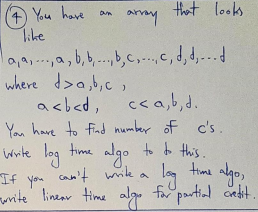 ④ You have an array that looks
like
a,a,...,a,b,b,...,b,c,...,c,d,d,...d
where d>a,b,c,
a<b<d, c<a,b,d.
You have to find number of c's.
Write log time algo to do this.
If you can't write a log time algo,
write linear time algo for partial credit.